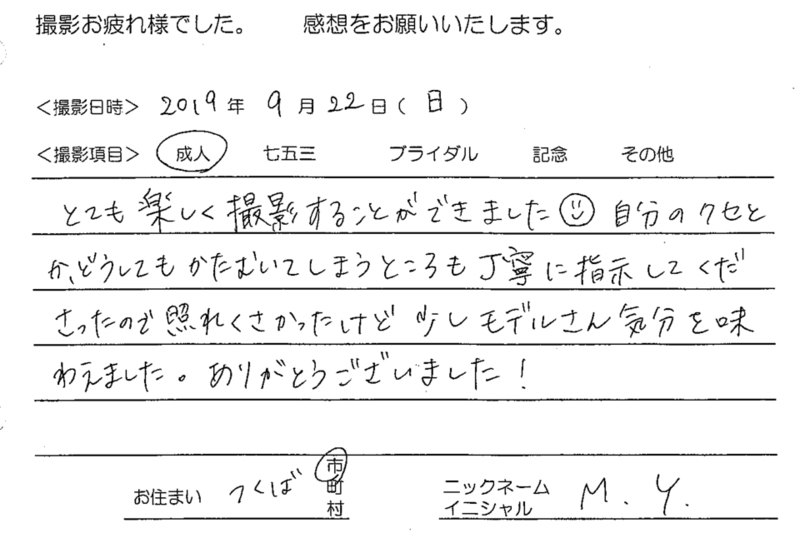 撮影お疲れ様でした。 感想をお願いいたします。
＜撮影日時＞ 2019年 9月22日（日）
＜撮影項目＞ 成人 七五三 ブライダル 記念 その他
とても楽しく撮影することができました☺ 自分のクセと
か、どうしてもかたむいてしまうところも丁寧に指示してくだ
さったので照れくさかったけど少しモデルさん気分を味
わえました。ありがとうございました！
お住まい つくば 市町村
ニックネーム イニシャル M.Y.